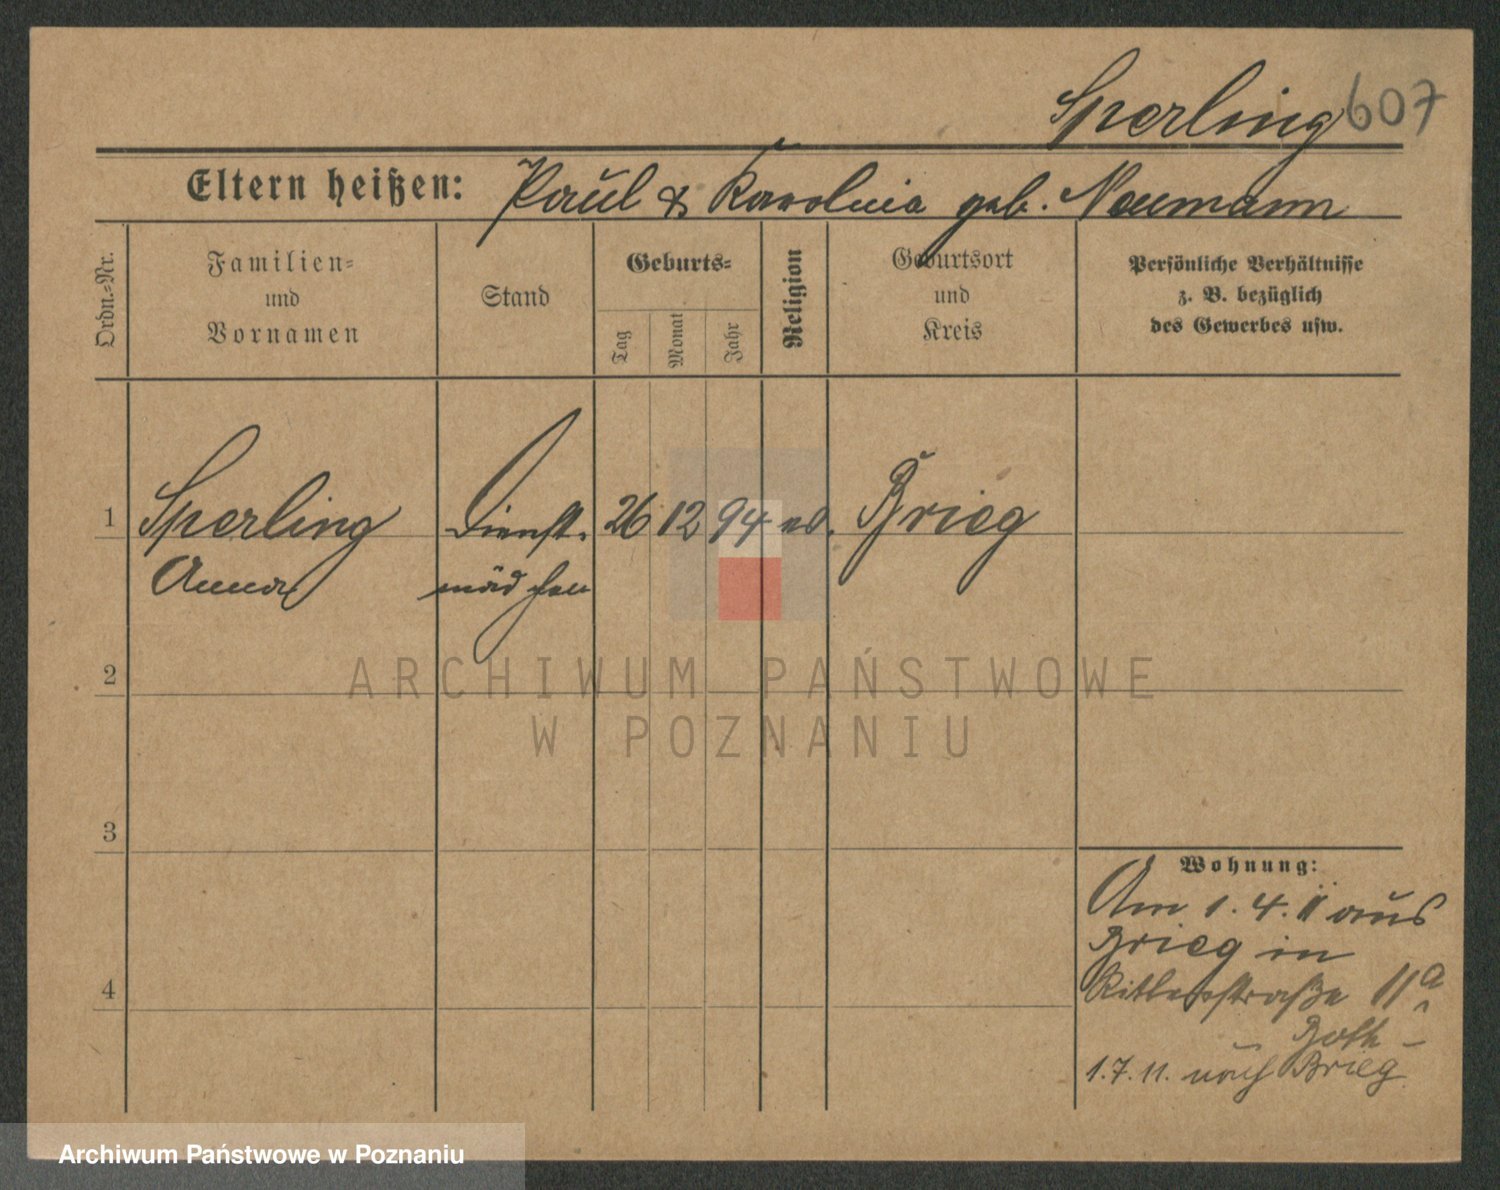 Sperling 607
Eltern heißen: Paul & Karolnia geb. Neumann
Ordn.-Nr.
Familien-
und
Vornamen
Stand
Geburts-
Tag
Monat
Jahr
Religion
Geburtsort
und
Kreis
Persönliche Verhältnisse
z. B. bezüglich
des Gewerbes usw.
1 Sperling Dienst- 26 12 94 ev. Brieg
Anna mädchen
2
3
4
Wohnung:
Am 1.4.11 aus
Brieg in
Ritterstraße 11a
1.7.11. nach Brieg
ARCHIWUM PAŃSTWOWE
W POZNANIU
Archiwum Państwowe w Poznaniu